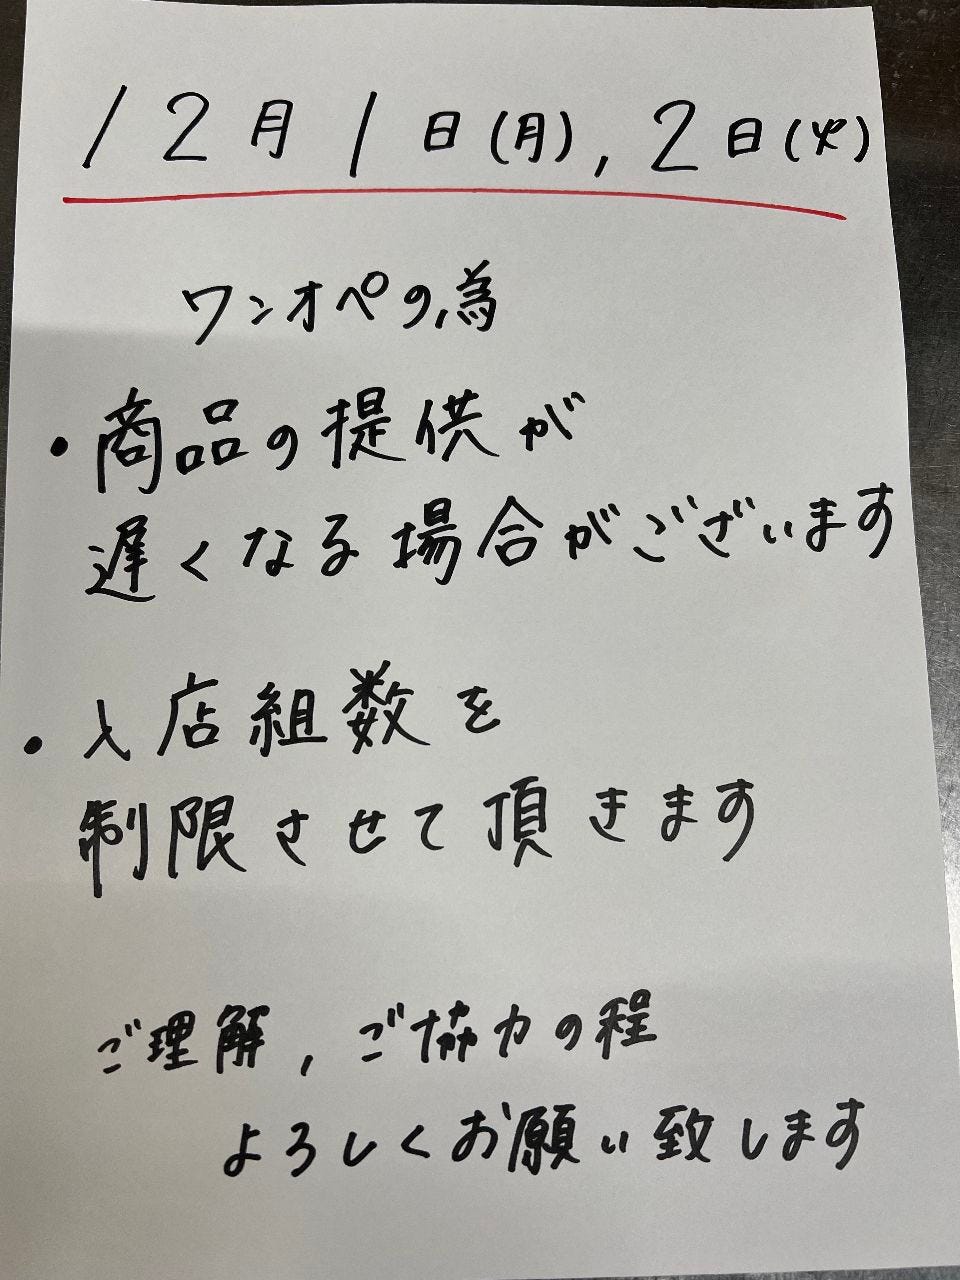 12月1日(月),2日(火)
ワンオペの為
・商品の提供が
遅くなる場合がございます
・入店組数を
制限させて頂きます
ご理解,ご協力の程
よろしくお願い致します